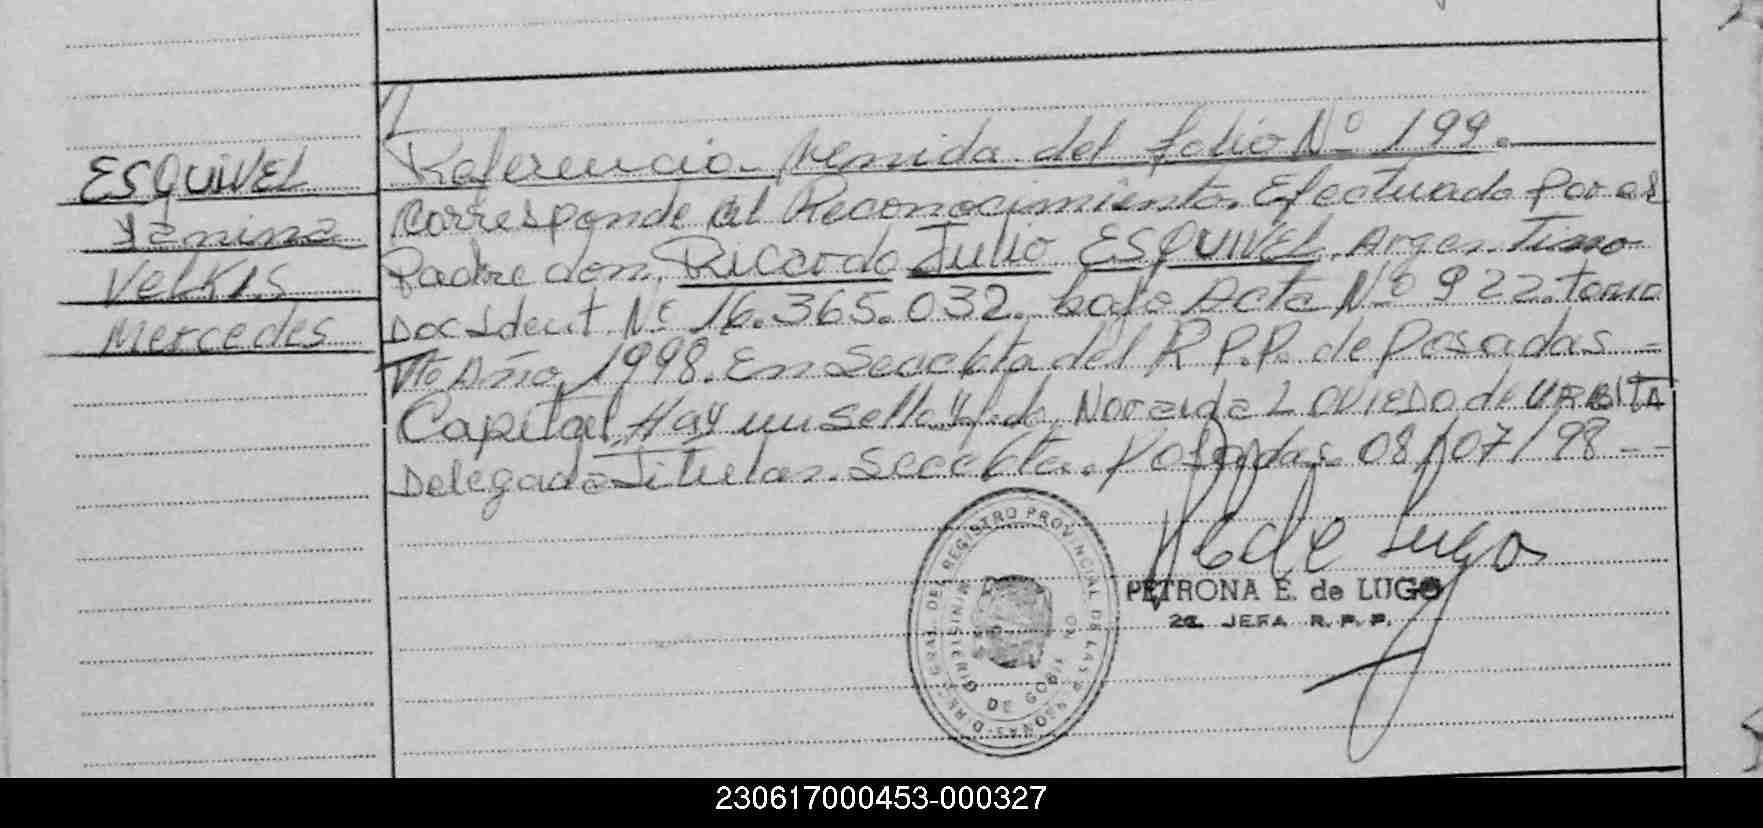 ESQUIVEL
Yanina
Velkis
Mercedes
Referencia venida del folio Nº 199.
Corresponde al Reconocimiento. Efectuado por el
Padre don. Ricardo Julio ESQUIVEL. Argentino
Doc Ident. Nº 16.365.032. bajo Acta Nº 922. tomo
Año 1998. En Seccbta del R.P.P. de Posadas -
Capital. Hay un sello y fdo Noraida L OVIEDO de URBITA
Delegada Titular. Seccbta. Posadas 08/07/98 --
DIREC. GRAL. DEL REGISTRO PROVINCIAL DE LAS PERSONAS
MINISTERIO DE GOBIERNO
PETRONA E. de LUGO
2a. JEFA R. P. P.
230617000453-000327